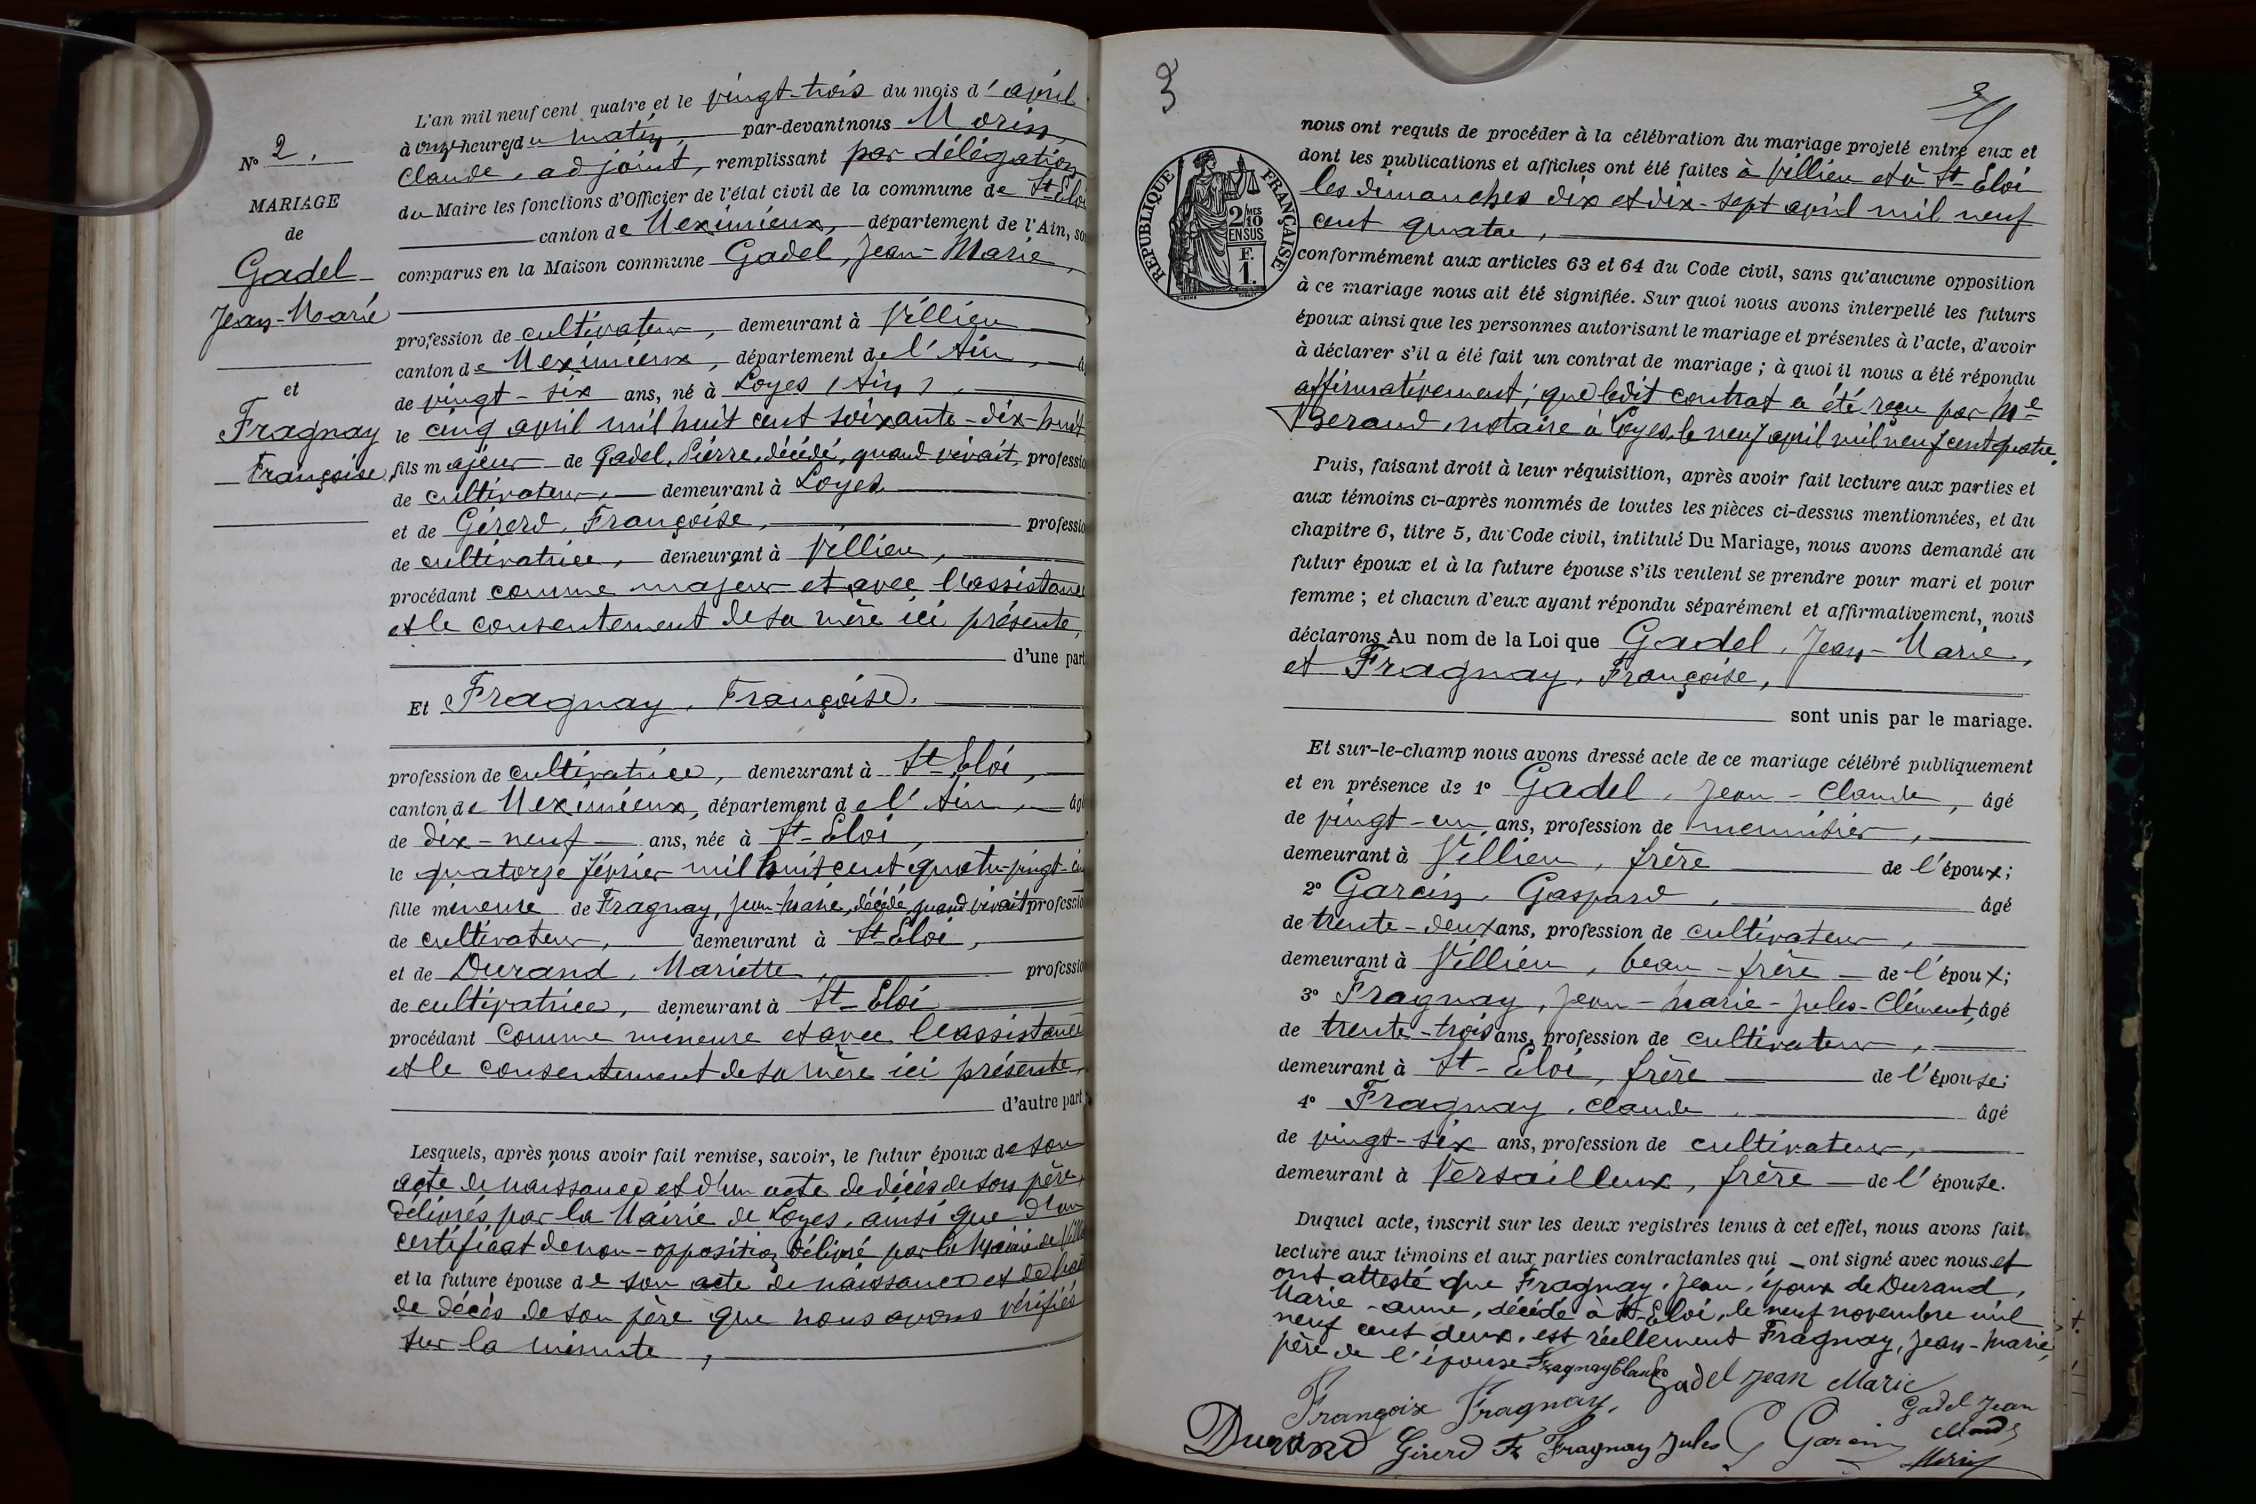 L'an mil neuf cent quatre et le vingt-trois du mois d'avril
à onze heures du matin, par-devant nous Morin,
Claude, adjoint, remplissant par délégation
du Maire les fonctions d'Officier de l'état civil de la commune de St-Eloi
canton de Meximieux, département de l'Ain, so
comparus en la Maison commune Gadel, Jean-Marie,
profession de cultivateur, demeurant à Villieu
canton de Meximieux, département de l'Ain,
de vingt-six ans, né à Loyes (Ain),
le cinq avril mil huit cent soixante-dix-huit
fils majeur de Gadel, Pierre, décédé, quand vivait, professio
de cultivateur, demeurant à Loyes
et de Girerd, Françoise, professio
de cultivatrice, demeurant à Villieu,
procédant comme majeur et avec l'assistance
et le consentement de sa mère ici présente,
d'une part
Et Fragnay, Françoise.
profession de cultivatrice, demeurant à St-Eloi,
canton de Meximieux, département de l'Ain, âgé
de dix-neuf ans, née à St-Eloi,
le quatorze février mil huit cent quatre-vingt-cin
fille mineure de Fragnay, Jean-Marie, décédé, quand vivait professio
de cultivateur, demeurant à St-Eloi,
et de Durand, Mariette, professio
de cultivatrice, demeurant à St-Eloi
procédant comme mineure et avec l'assistance
et le consentement de sa mère ici présente,
d'autre part
Lesquels, après nous avoir fait remise, savoir, le futur époux de son
acte de naissance et d'un acte de décès de son père,
délivrés par la Mairie de Loyes, ainsi que d'un
certificat de non-opposition délivré par la Mairie de
et la future épouse de son acte de naissance et de
de décès de son père que nous avons vérifiés
sur la minute,
N° 2.
MARIAGE
de
Gadel
Jean-Marie
et
Fragnay
Françoise
3
REPUBLIQUE FRANÇAISE
2/10 MES
EN SUS
F.
1.
nous ont requis de procéder à la célébration du mariage projeté entre eux et
dont les publications et affiches ont été faites à Villieu et à St-Eloi
les dimanches dix et dix-sept avril mil neuf
cent quatre,
conformément aux articles 63 et 64 du Code civil, sans qu'aucune opposition
à ce mariage nous ait été signifiée. Sur quoi nous avons interpellé les futurs
époux ainsi que les personnes autorisant le mariage et présentes à l'acte, d'avoir
à déclarer s'il a été fait un contrat de mariage ; à quoi il nous a été répondu
affirmativement ; que ledit contrat a été reçu par Me
Beraud, notaire à Loyes le neuf avril mil neuf cent quatre.
Puis, faisant droit à leur réquisition, après avoir fait lecture aux parties et
aux témoins ci-après nommés de toutes les pièces ci-dessus mentionnées, et du
chapitre 6, titre 5, du Code civil, intitulé Du Mariage, nous avons demandé au
futur époux et à la future épouse s'ils veulent se prendre pour mari et pour
femme ; et chacun d'eux ayant répondu séparément et affirmativement, nous
déclarons Au nom de la Loi que Gadel, Jean-Marie,
et Fragnay, Françoise,
sont unis par le mariage.
Et sur-le-champ nous avons dressé acte de ce mariage célébré publiquement
et en présence de 1° Gadel, Jean-Claude, âgé
de vingt-un ans, profession de menuisier,
demeurant à Villieu, frère de l'époux;
2° Garcin, Gaspard, âgé
de trente-deux ans, profession de cultivateur,
demeurant à Villieu, beau-frère de l'époux;
3° Fragnay, Jean-Marie-Jules-Clément, âgé
de trente-trois ans, profession de cultivateur,
demeurant à St-Eloi, frère de l'épouse;
4° Fragnay, Claude, âgé
de vingt-six ans, profession de cultivateur,
demeurant à Versailleux, frère de l'épouse.
Duquel acte, inscrit sur les deux registres tenus à cet effet, nous avons fait
lecture aux témoins et aux parties contractantes qui ont signé avec nous et
ont attesté que Fragnay, Jean, époux de Durand,
Marie-Anne, décédé à St-Eloi, le neuf novembre mil
neuf cent deux, est réellement Fragnay, Jean-Marie,
père de l'épouse
Fragnay Claude
Gadel Jean Marie
Françoise Fragnay
Gadel Jean
Claude
Durand
Girerd Fr
Fragnay Jules
G Garcin
Morin